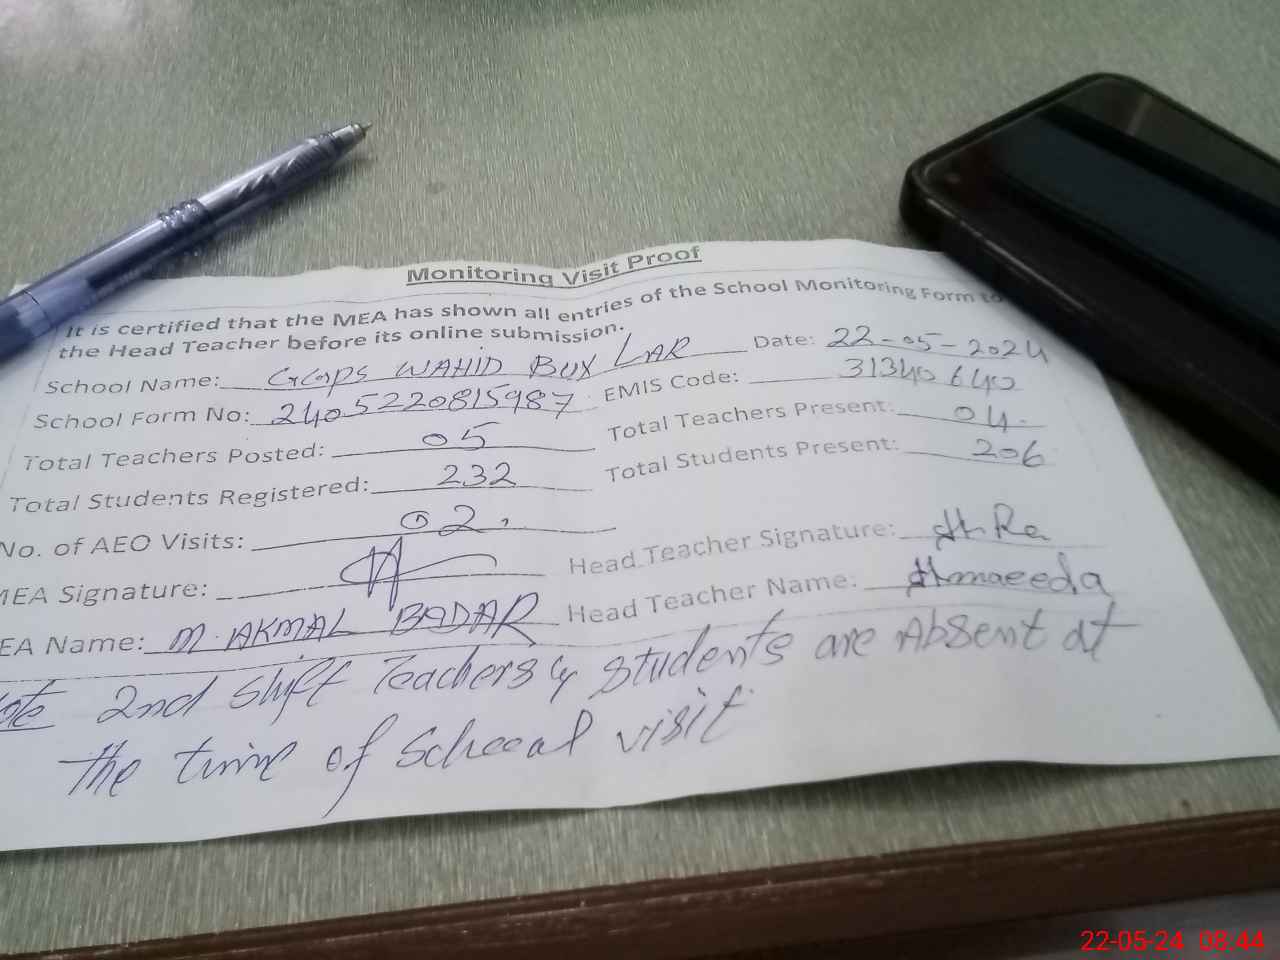 Monitoring Visit Proof
It is certified that the MEA has shown all entries of the School Monitoring Form to
the Head Teacher before its online submission.
School Name: GGPS WAHID BUX LAR Date: 22-05-2024
School Form No: 2405220815987 EMIS Code: 31340640
Total Teachers Posted: 05 Total Teachers Present: 04
Total Students Registered: 232 Total Students Present: 206
No. of AEO Visits: 02
MEA Signature: Head Teacher Signature:
EA Name: M. AKMAL BADAR Head Teacher Name: Humaeeda
ote 2nd Shift Teachers & Students are Absent at
the time of School visit
22-05-24 08:44